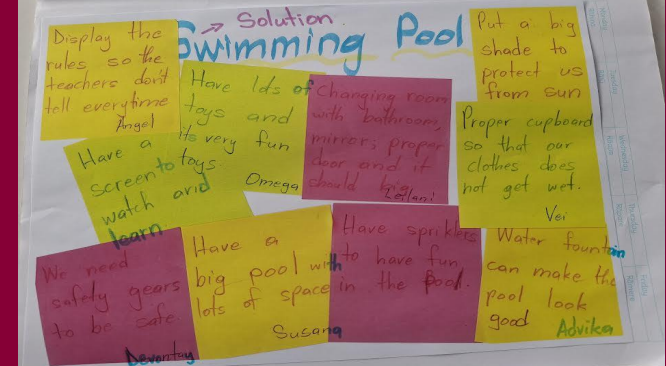 → Solution
Swimming Pool
Display the
rules so the
teachers don't
tell everytime
Angel
Have lots of
toys and
its very fun
toys
Omega
Changing room
with bathroom,
mirrors, proper
door and it
should big
Leilani
Put a big
shade to
protect us
from sun
Proper cupboard
so that our
clothes does
not get wet.
Vei
Have a
screen to
watch and
learn
We need
safety gears
to be safe.
Devontay
Have a
big pool with
lots of space
Susana
Have sprinklers
to have fun
in the Pool.
Water fountain
can make the
pool look
good
Advika